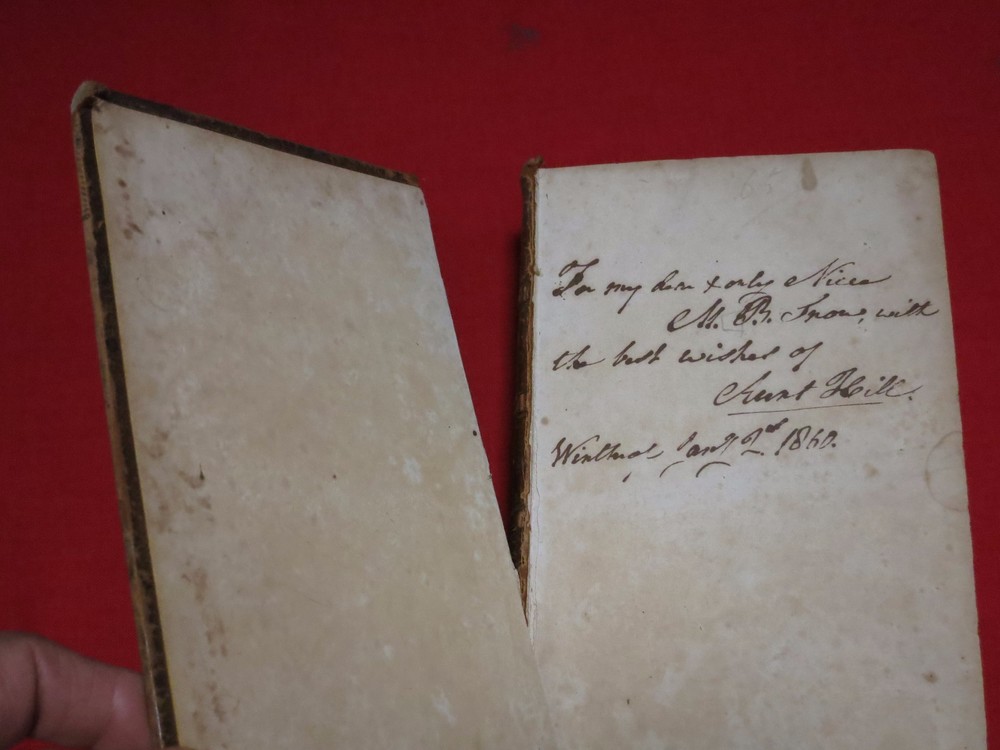 For my dear & only Niece
M. B. Frow, with
the best wishes of
Aunt Hill.
Winthrop Jany 2nd 1860.